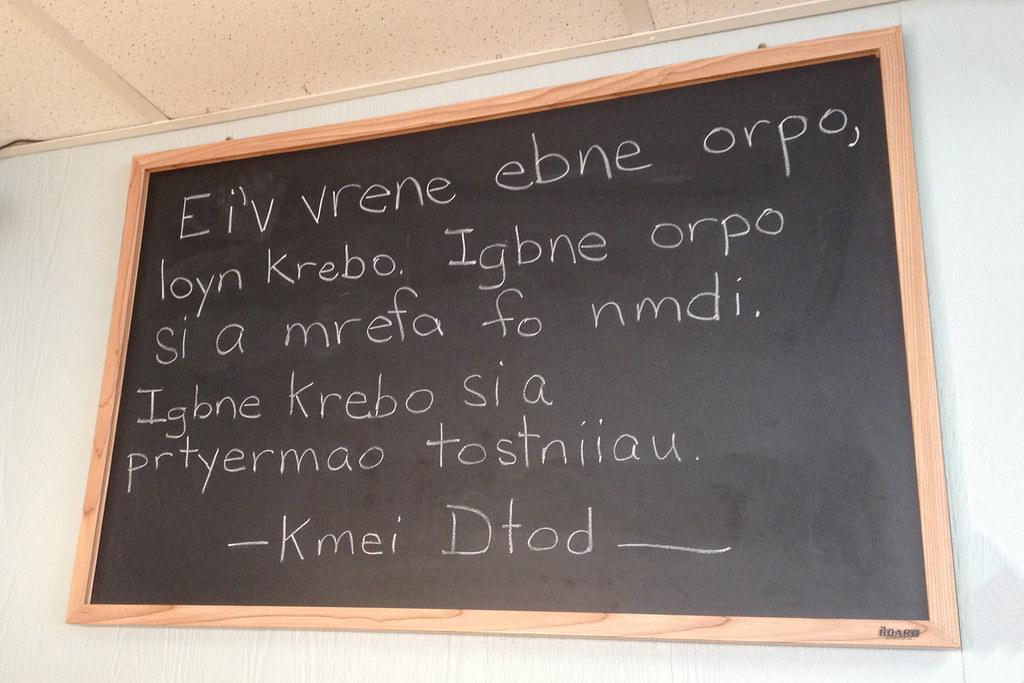 E i'v vrene ebne orpo,
loyn krebo. Igbne orpo
si a mrefa fo nmdi.
Igbne krebo si a
prtyermao tostniiau.
- Kmei Dtod —
BOARD